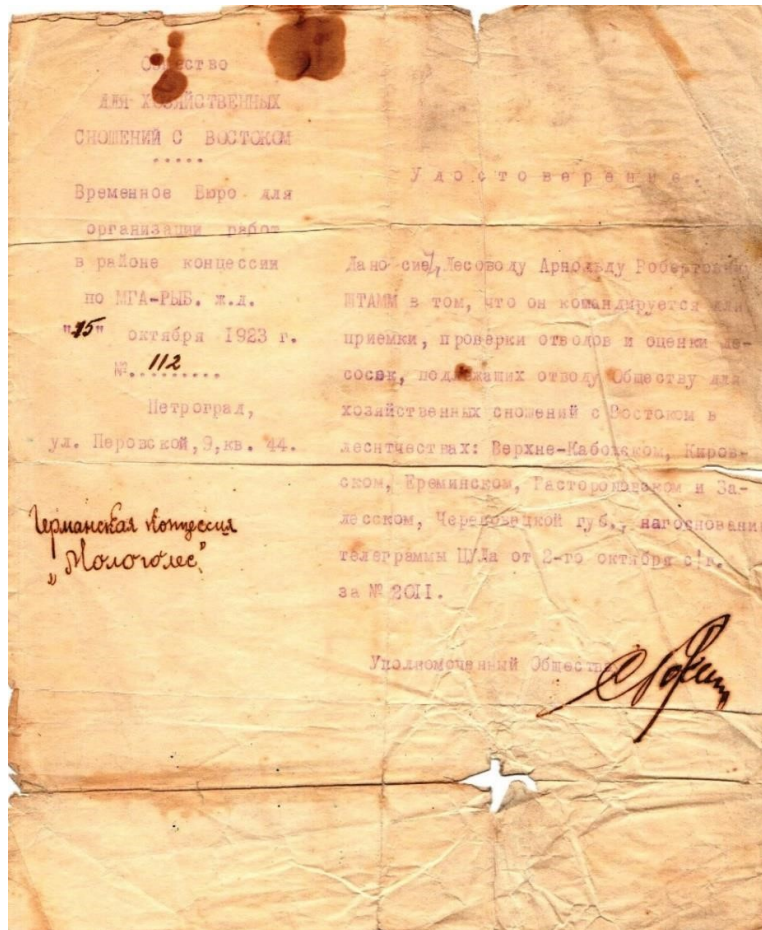 Общество
ДЛЯ ХОЗЯЙСТВЕННЫХ
СНОШЕНИЙ С ВОСТОКОМ
.....
Временное Бюро для
организации работ
в районе концессии
по МГА-РЫБ. ж.д.
"15" октября 1923 г.
№..112.......
Петроград,
ул. Перовской,9,кв. 44.
Германская Концессия
„Мологолес"
Удостоверение.
Дано сие, Лесоводу Арнольду Робертовичу
ШТАММ в том, что он командируется для
приемки, проверки отводов и оценки ле-
сосек, подлежащих отводу Обществу для
хозяйственных сношений с Востоком в
лесничествах: Верхне-Кабожском, Киров-
ском, Ереминском, и За-
лесском, Череповецкой губ., на основании
телеграммы ЦУЛа от 2-го октября с!г.
за № 2011.
Уполномоченный Общества